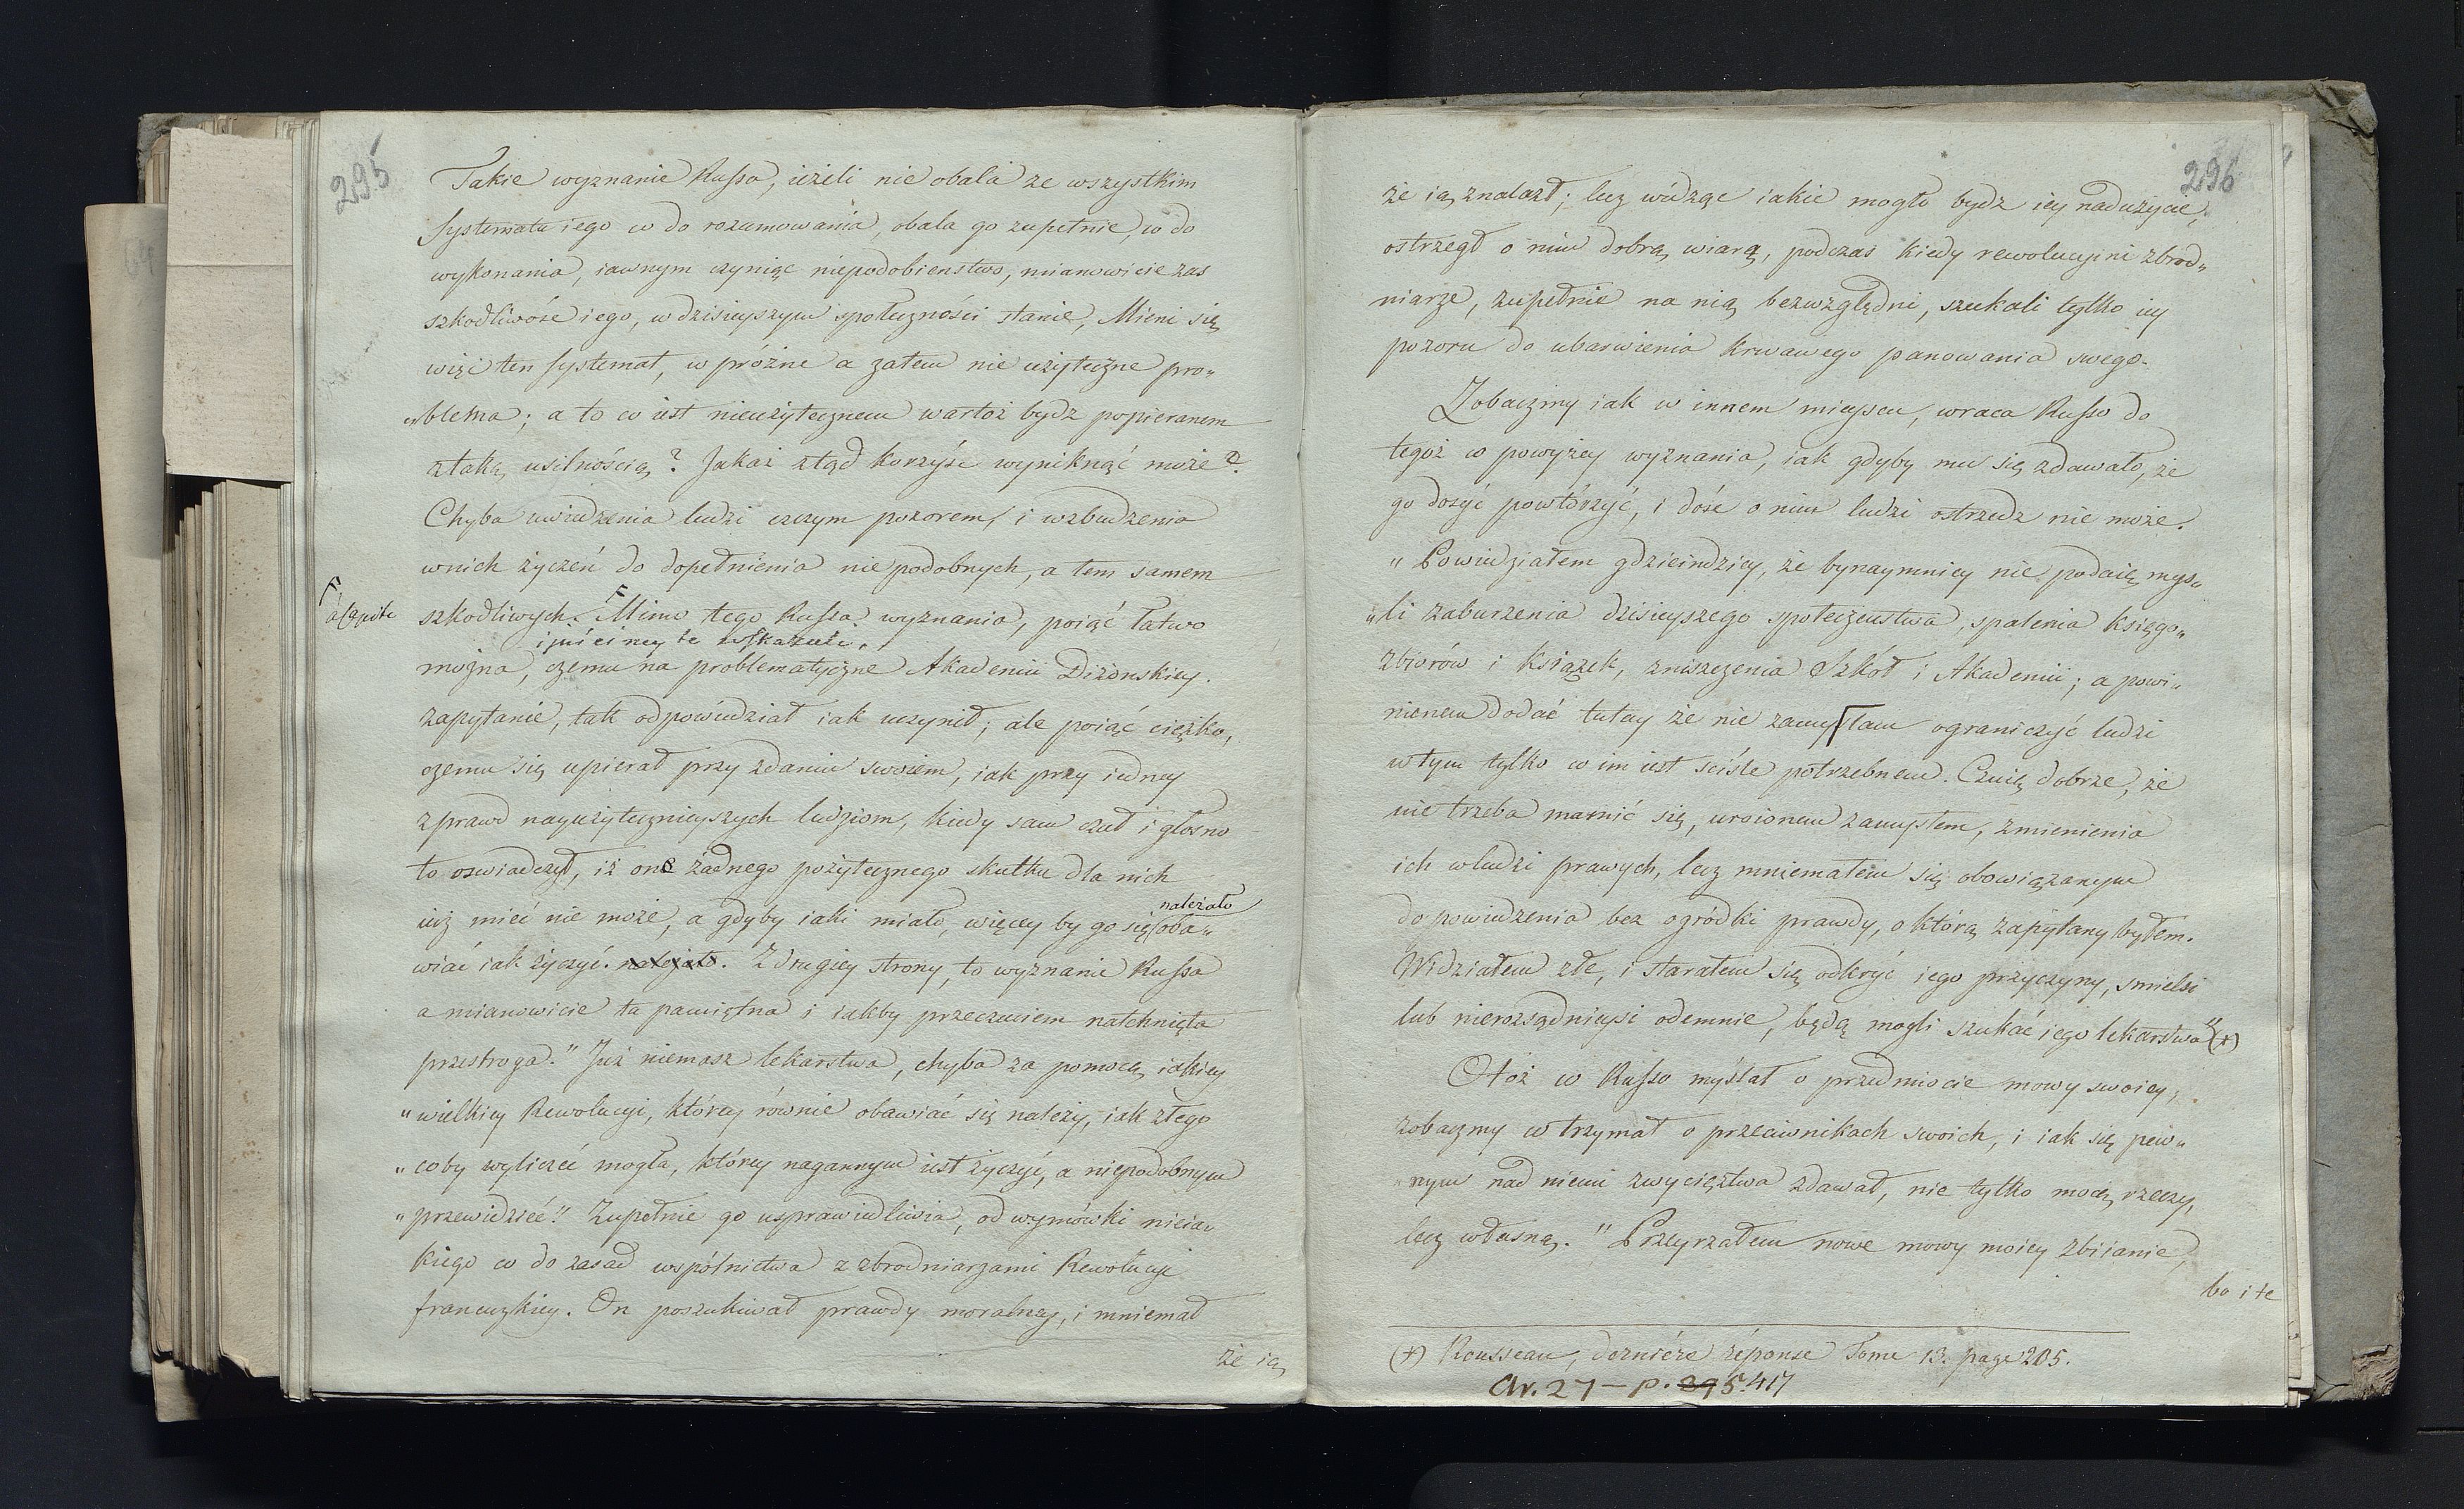 295
Takie wyznanie Russa, ieżeli nie obala ze wszystkim
systematu iego co do rozumowania, obala go zupełnie, co do
wykonania, iawnym czyniąc niepodobieństwo, mianowicie zas
szkodliwość iego, w dzisieyszym społeczności stanie, Mieni się
więc ten systemat, w próżne a zatem nie użyteczne pro„
„blema; a to co iest nieużytecznem wartoż bydz popieranem
ztaką usilnością? Jakaż ztąd korzyść wyniknąć może?
Chyba uwiedzenia ludzi czczym pozorem, i wzbudzenia
wnich życzeń do dopełnienia nie podobnych, a tem samem
szkodliwych. Mimo tego Russa wyznania, poiąć łatwo
można, czemu na problematyczne Akademii Diżonskiey
zapytanie, tak odpowiedział iak uczynił; ale poiąć ciężko,
czemu się upierał przy zdaniu swoiem, iak przy iedney
zprawd nayużytecznieyszych ludziom, kiedy sam czuł i głosno
to oswiadczył, iż one żadnego pożytecznego skutku dla nich
iuż mieć nie może, a gdyby iaki miało, więcey by go się należało oba„
wiać iak życzyć. należało. Z drugiey strony, to wyznanie Russa
a mianowicie ta pamiętna i iakby przeczuciem natchnięta
przestroga." Już niemasz lekarstwa, chyba za pomocą iakiey
„wielkiey Rewolucyi, którey równie obawiać się należy, iak złego
„coby wyliczeć mogła, którey nagannym iest życzyć, a niepodobnym
„przewidzieć." Zupełnie go usprawiedliwia, od wymówki nieia„
kiego co do zasad wspólnictwa z zbrodniarzami Rewolucyi
francuzkiey. On poszukiwał prawdy moralney, i mniemał
że ią
296
że ią znalazł; lecz widząc iakie mogło bydz iey nadużycie,
ostrzegł o nim dobrą wiarą, podczas kiedy rewolucyini zbrod„
niarze, zupełnie na nią bezwzględni, szukali tylko iey
pozoru do ubarwienia krwawego panowania swego.
Zobaczmy iak w innem mieyscu, wraca Russo do
tegoż co powyżey wyznania, iak gdyby mu się zdawało, że
go dosyć powtórzyć, i dość o nim ludzi ostrzedz nie może.
„Powiedziałem gdzieindziey, że bynaymniey nie podaię mys„
„li zaburzenia dzisieyszego społeczeństwa, spalenia księgo„
zbiorów i książek, zniszczenia Szkół i Akademii; a powi„
nienem dodać tutay że nie zamyslam ograniczyć ludzi
wtym tylko co im iest sciśle potrzebnem. Czuię dobrze, że
nie trzeba mamić się, uroionem zamysłem, zmienienia
ich wludzi prawych, lecz mniemałem się obowiązanym
do powiedzenia bez ogródki prawdy, o którą zapytany byłem.
Widziałem złe, i starałem się odkryć iego przyczyny, smielsi
lub nierozsądnieysi odemnie, będą mogli szukać iego lekarstwa" (+)
Otóż co Russo myślał o przedmiocie mowy swoiey,
zobaczmy co trzymał o przeciwnikach swoich, i iak się pew„
nym nad niemi zwycięztwa zdawał, nie tylko mocą rzeczy,
lecz własną. "Przeyrzałem nowe mowy moiey zbiianie,
bo i te
(+) Rousseau, derniére réponse Tome 13. page 205.
Ar. 27 – p. 395. 417